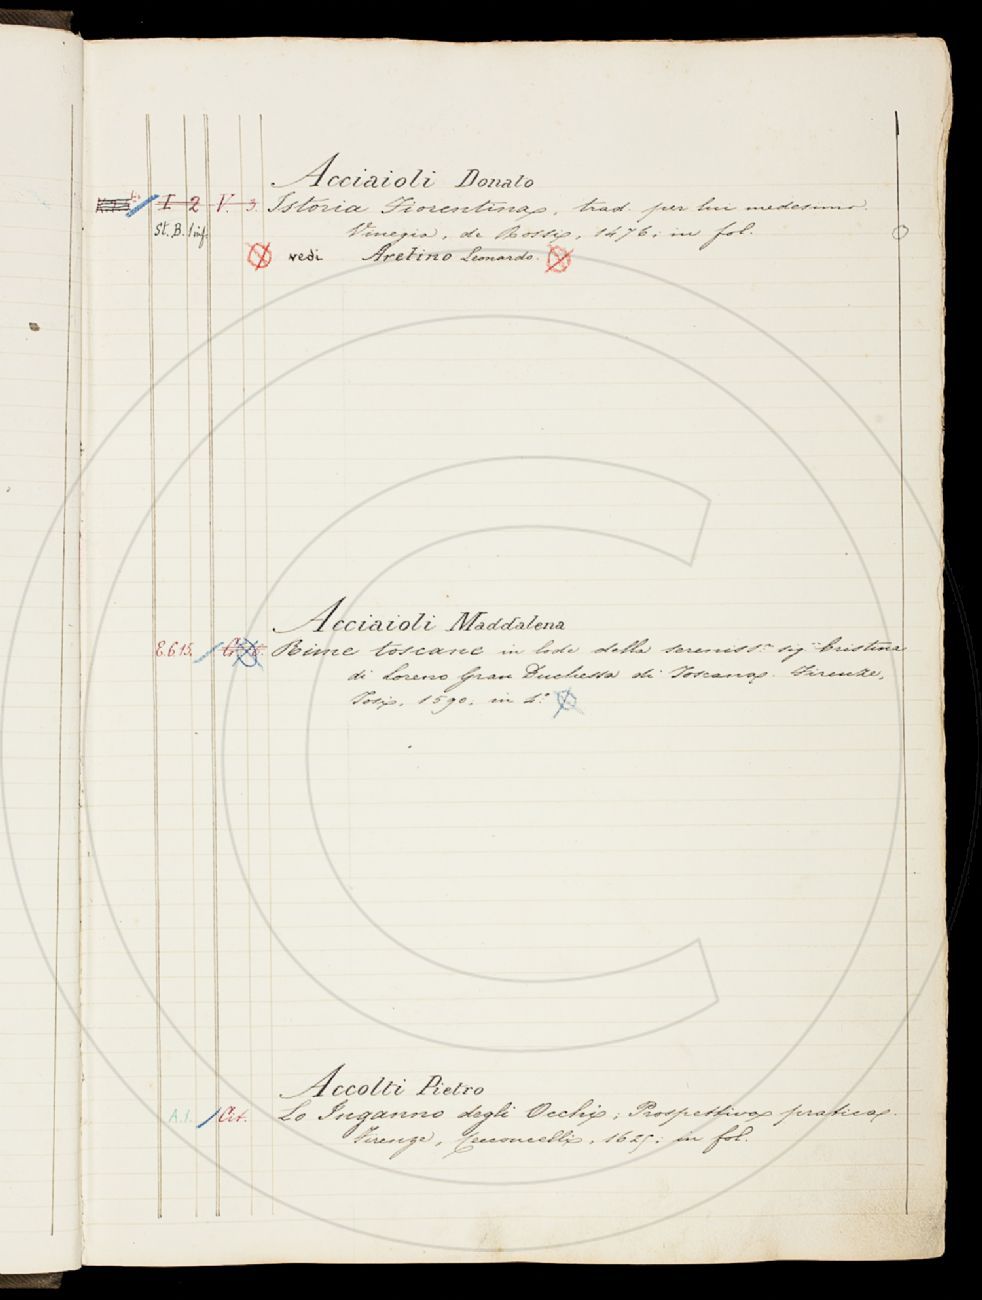 Acciaioli Donato
I 2 V. 3. Istoria Fiorentina, trad. per lui medesimo.
St. B. 1 inf. Vinegia, de Rossi, 1476; in fol.
vedi Aretino Leonardo.
Acciaioli Maddalena
E.6.15. Rime toscane in lode della sereniss.ᵃ sig.ʳᵃ Cristina
di Loreno Gran Duchessa di Toscana. Firenze,
Tosi, 1590, in 4.°
Accolti Pietro
A.1. Cit. Lo Inganno degli Occhi; Prospettiva pratica.
Firenze, Cecconcelli, 1625; in fol.